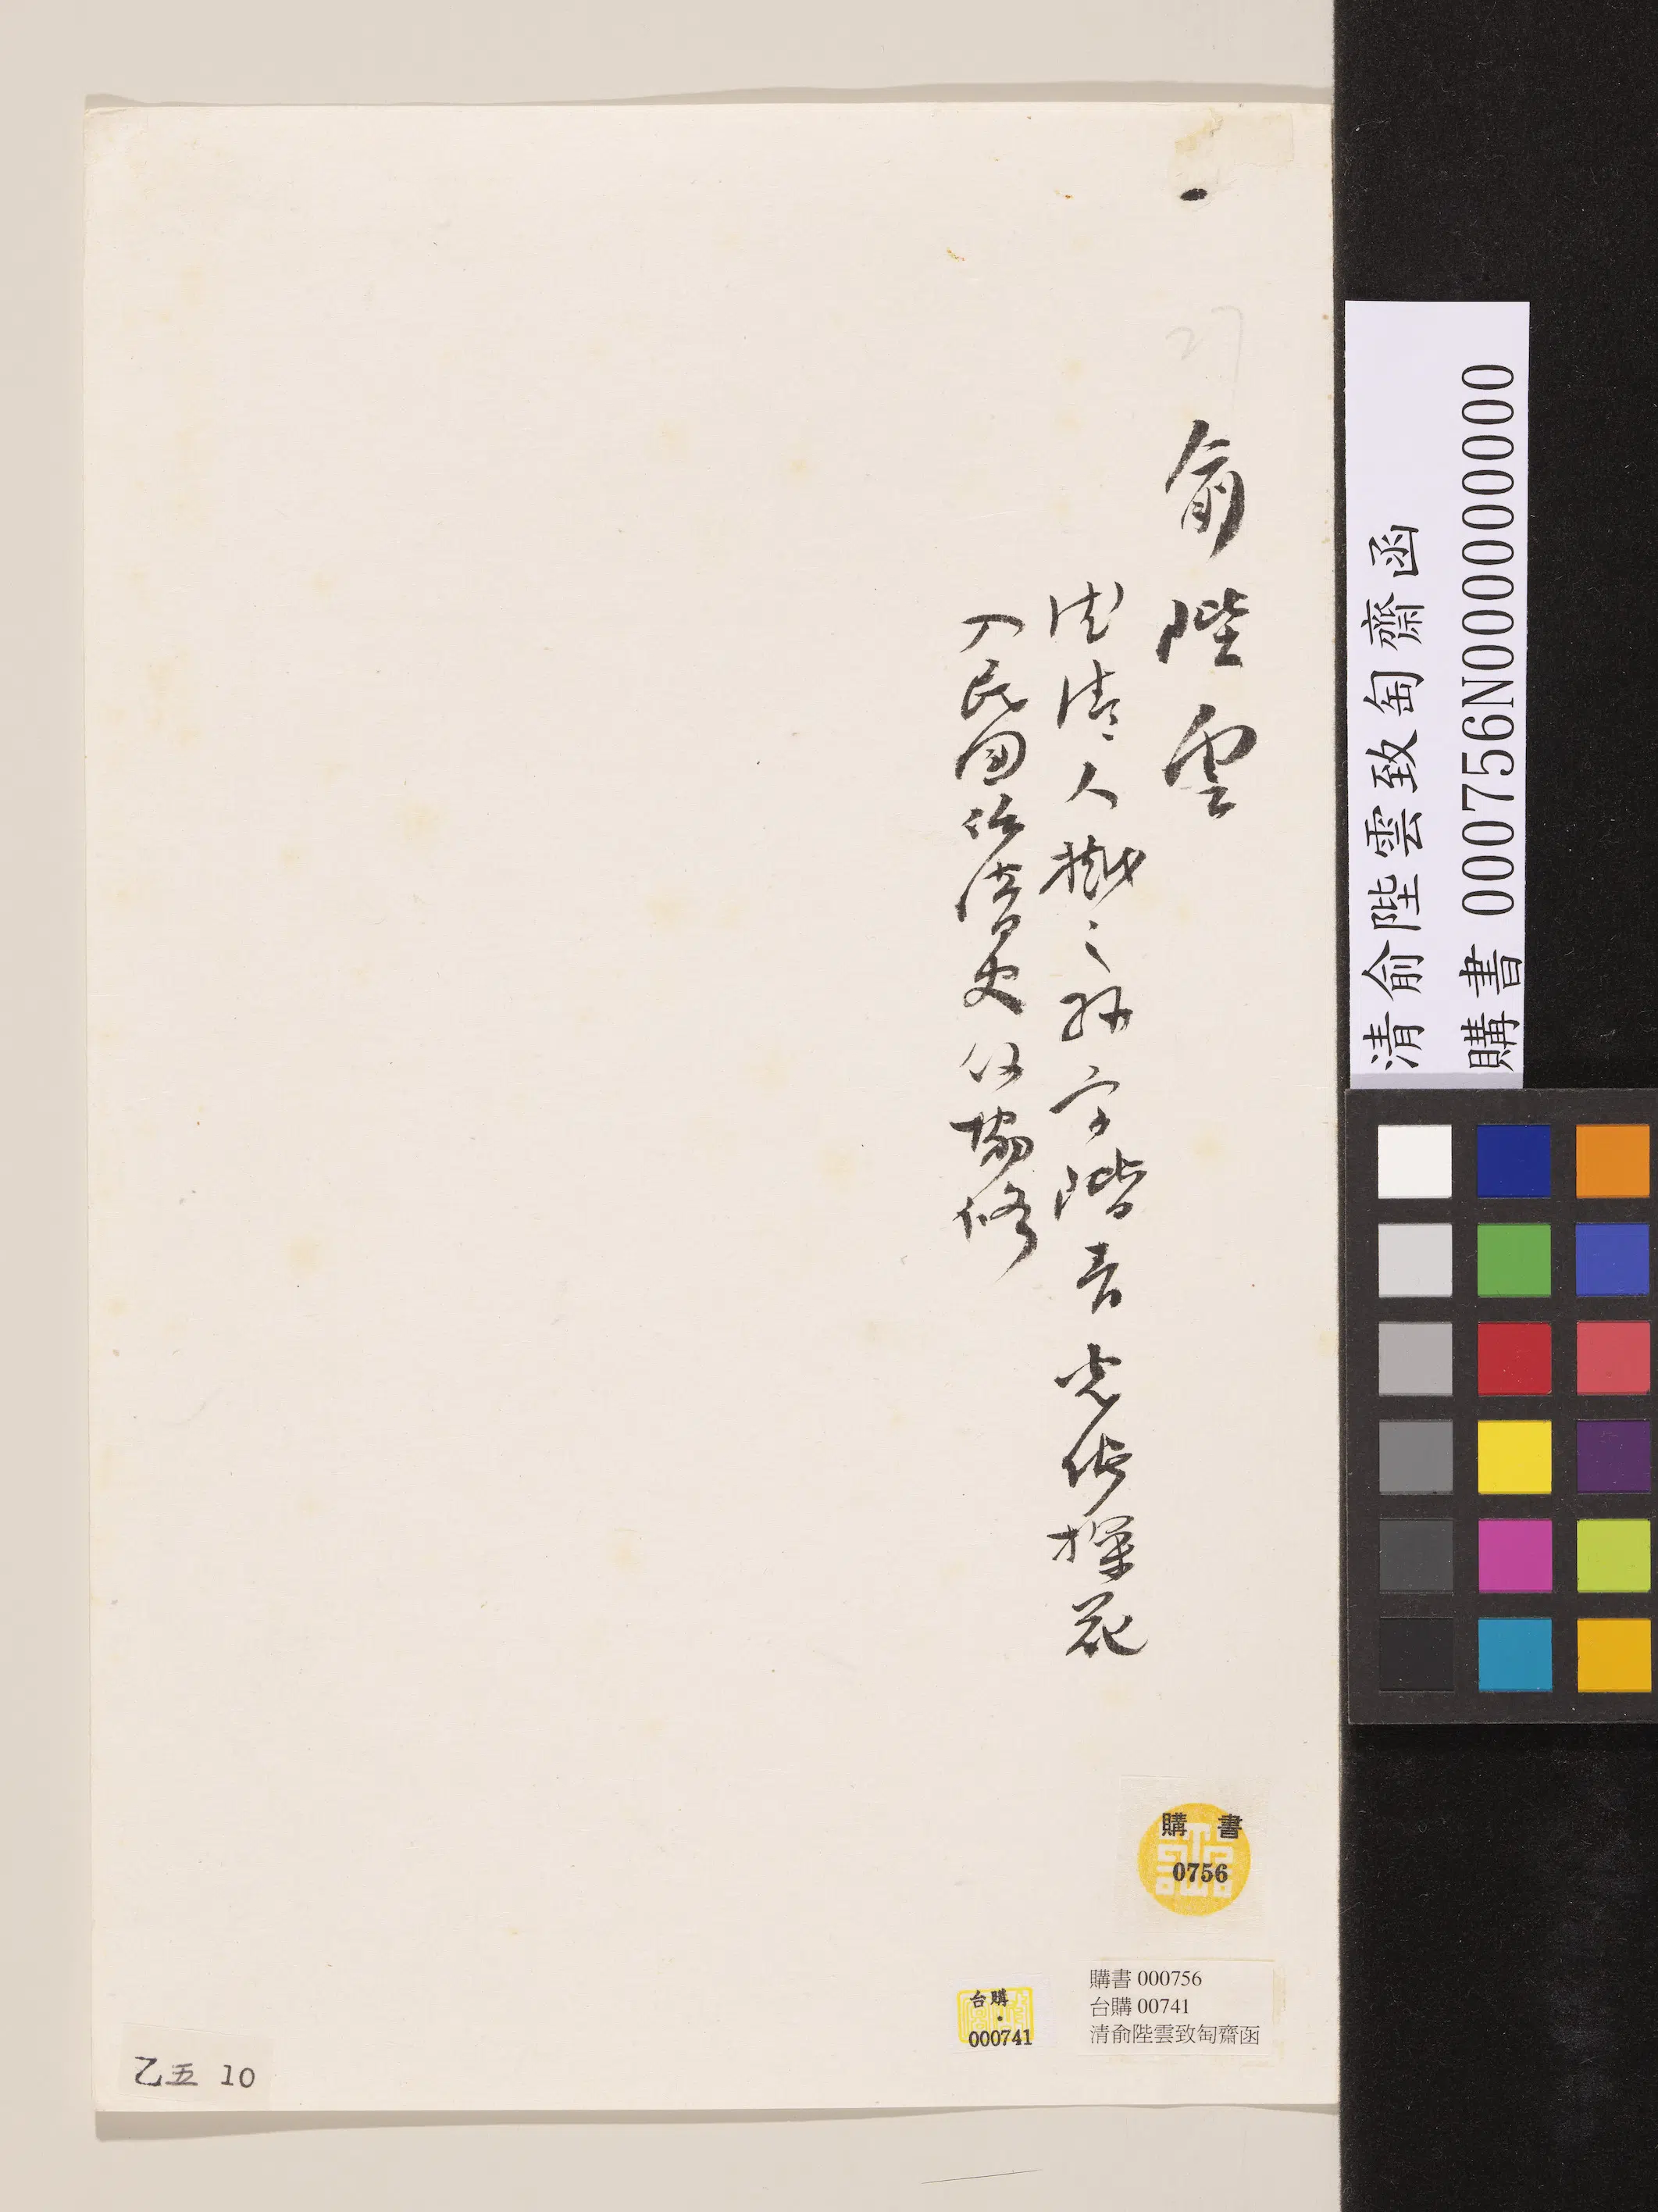 27
俞陛雲
德清人樾之孫字階青光緒探花
入民國任清史館協修
購書
0756
台購
000741
購書 000756
台購 00741
清俞陛雲致匋齋函
乙五 10
清俞陛雲致匋齋函
購書 000756N000000000